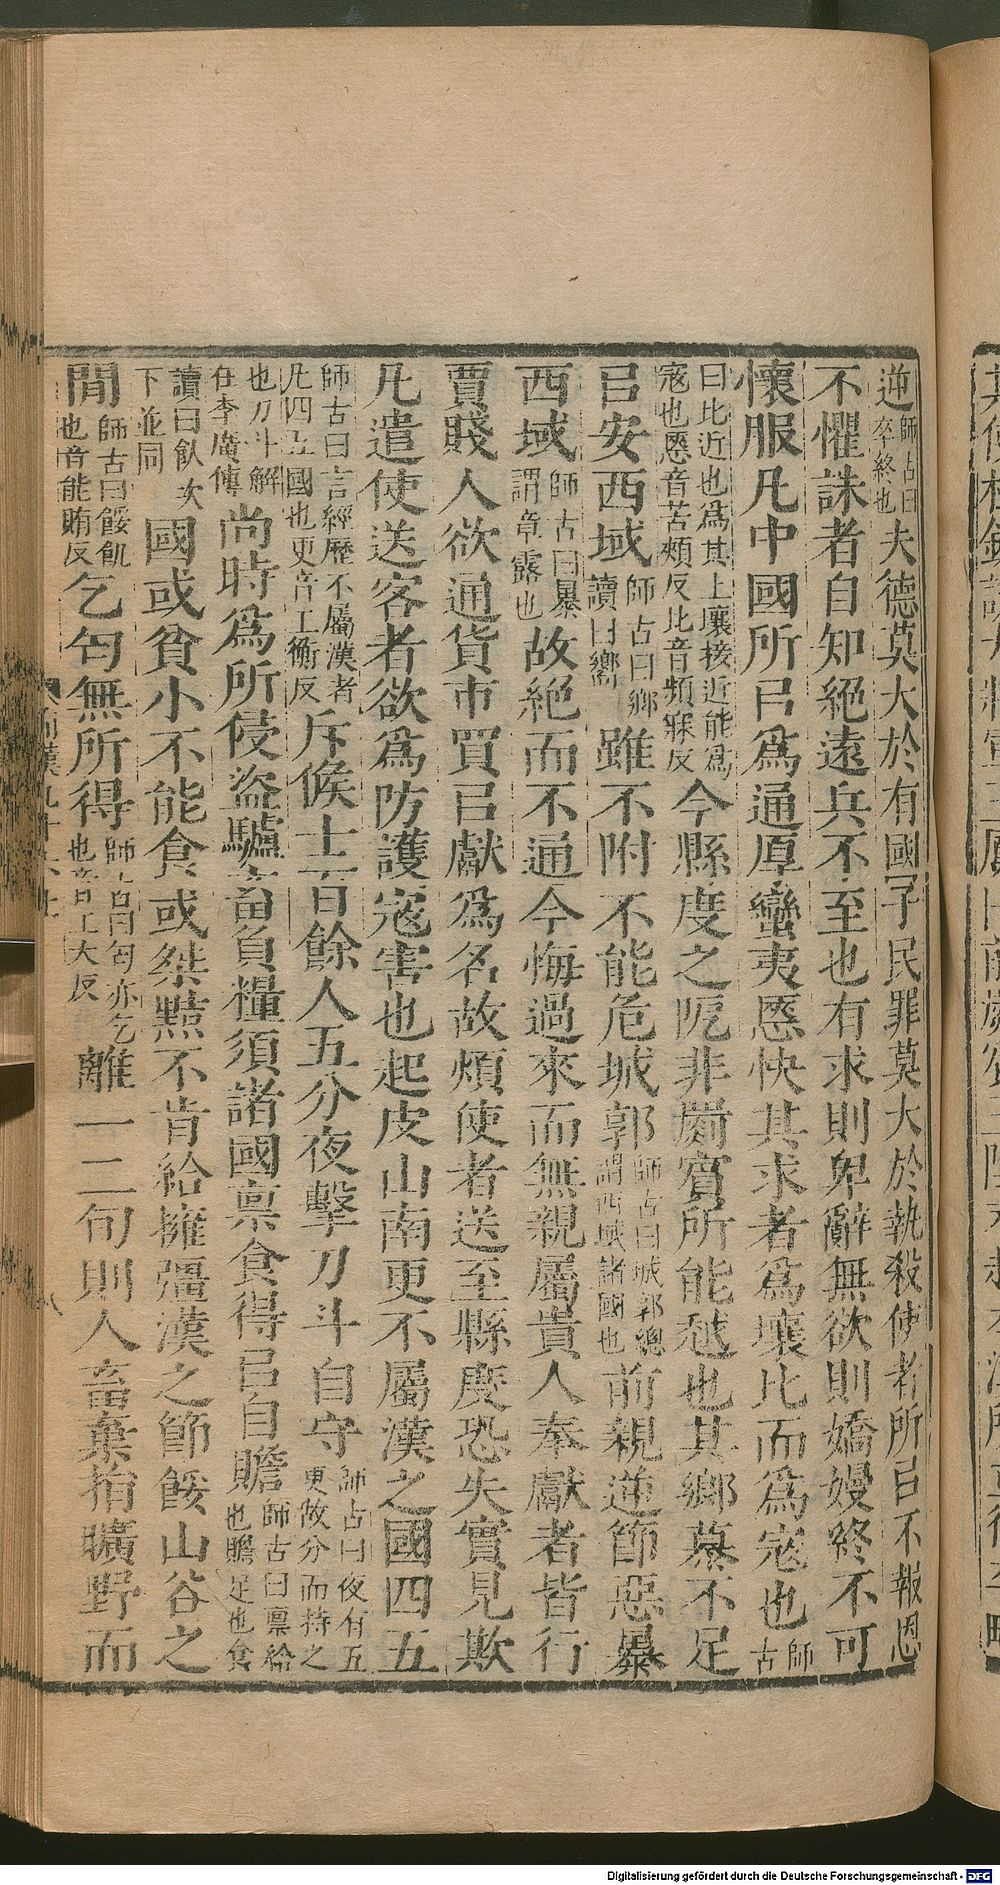 逆師古曰卒終也夫德莫大於有國子民罪莫大於執殺使者所㠯不報恩
不懼誅者自知絕遠兵不至也有求則卑辭無欲則嬌嫚終不可
懷服凡中國所㠯爲通厚蠻夷愿快其求者爲壤比而爲寇也師古
曰比近也爲其土壤接近能爲寇也愿音苦頰反比音頻寐反今縣度之阸非罽賓所能越也其鄉慕不足
㠯安西域師古曰鄉讀曰嚮雖不附不能危城郭師古曰城郭總謂西域諸國也前親逆節惡暴
西域師古曰暴謂章露也故絕而不通今悔過來而無親屬貴人奉獻者皆行
賈賤人欲通貨市買㠯獻爲名故煩使者送至縣度恐失實見欺
凡遣使送客者欲爲防護寇害也起皮山南更不屬漢之國四五
師古曰言經歷不屬漢者凡四五國也更音工衡反斥候士百餘人五分夜擊刀斗自守師古曰夜有五更故分而持之
也刀斗解在李廣傳尚時爲所侵盜驢畜負糧須諸國禀食得㠯自贍師古曰禀給也贍足也食
讀曰飤次下並同國或貧小不能食或桀黠不肯給擁彊漢之節餒山谷之
閒師古曰餒飢也音能賄反乞匄無所得師古曰匄亦乞也音工大反離一二旬則人畜棄捐曠野而
Digitalisierung gefördert durch die Deutsche Forschungsgemeinschaft - DFG